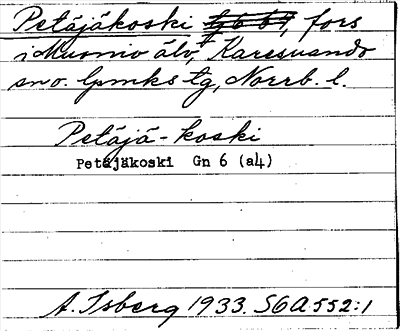 Petäjäkoski, fors
i Muonio älv, Karesuando
sn o. lpmks tg, Norrb. l.
Petäjä-koski
Petäjäkoski Gn 6 (a4)
A. Isberg 1933. S6A552:1